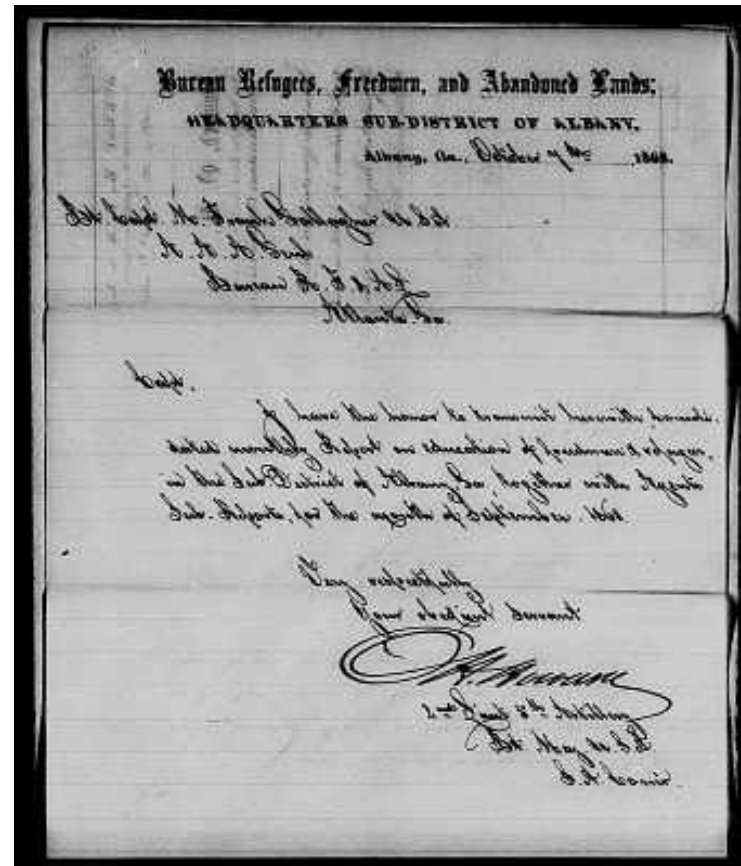 Bureau Refugees, Freedmen, and Abandoned Lands;
HEADQUARTERS SUB-DISTRICT OF ALBANY,
Albany, Ga., October 7th 1868.
Bt Capt M. Frank Gallagher U S A
A. A. A. Genl
Bureau R. F & A L
Atlanta Ga.
Capt.
I have the honor to transmit herewith, consoli-
dated monthly Report on education of freedmen & refugees,
in the Sub District of Albany Ga, together with Agents
Sub-Reports, for the month of September 1868
Very respectfully
Your obedient Servant
2nd Lieut 5th Artillery
Bt Maj U S A
S. A. Comr.